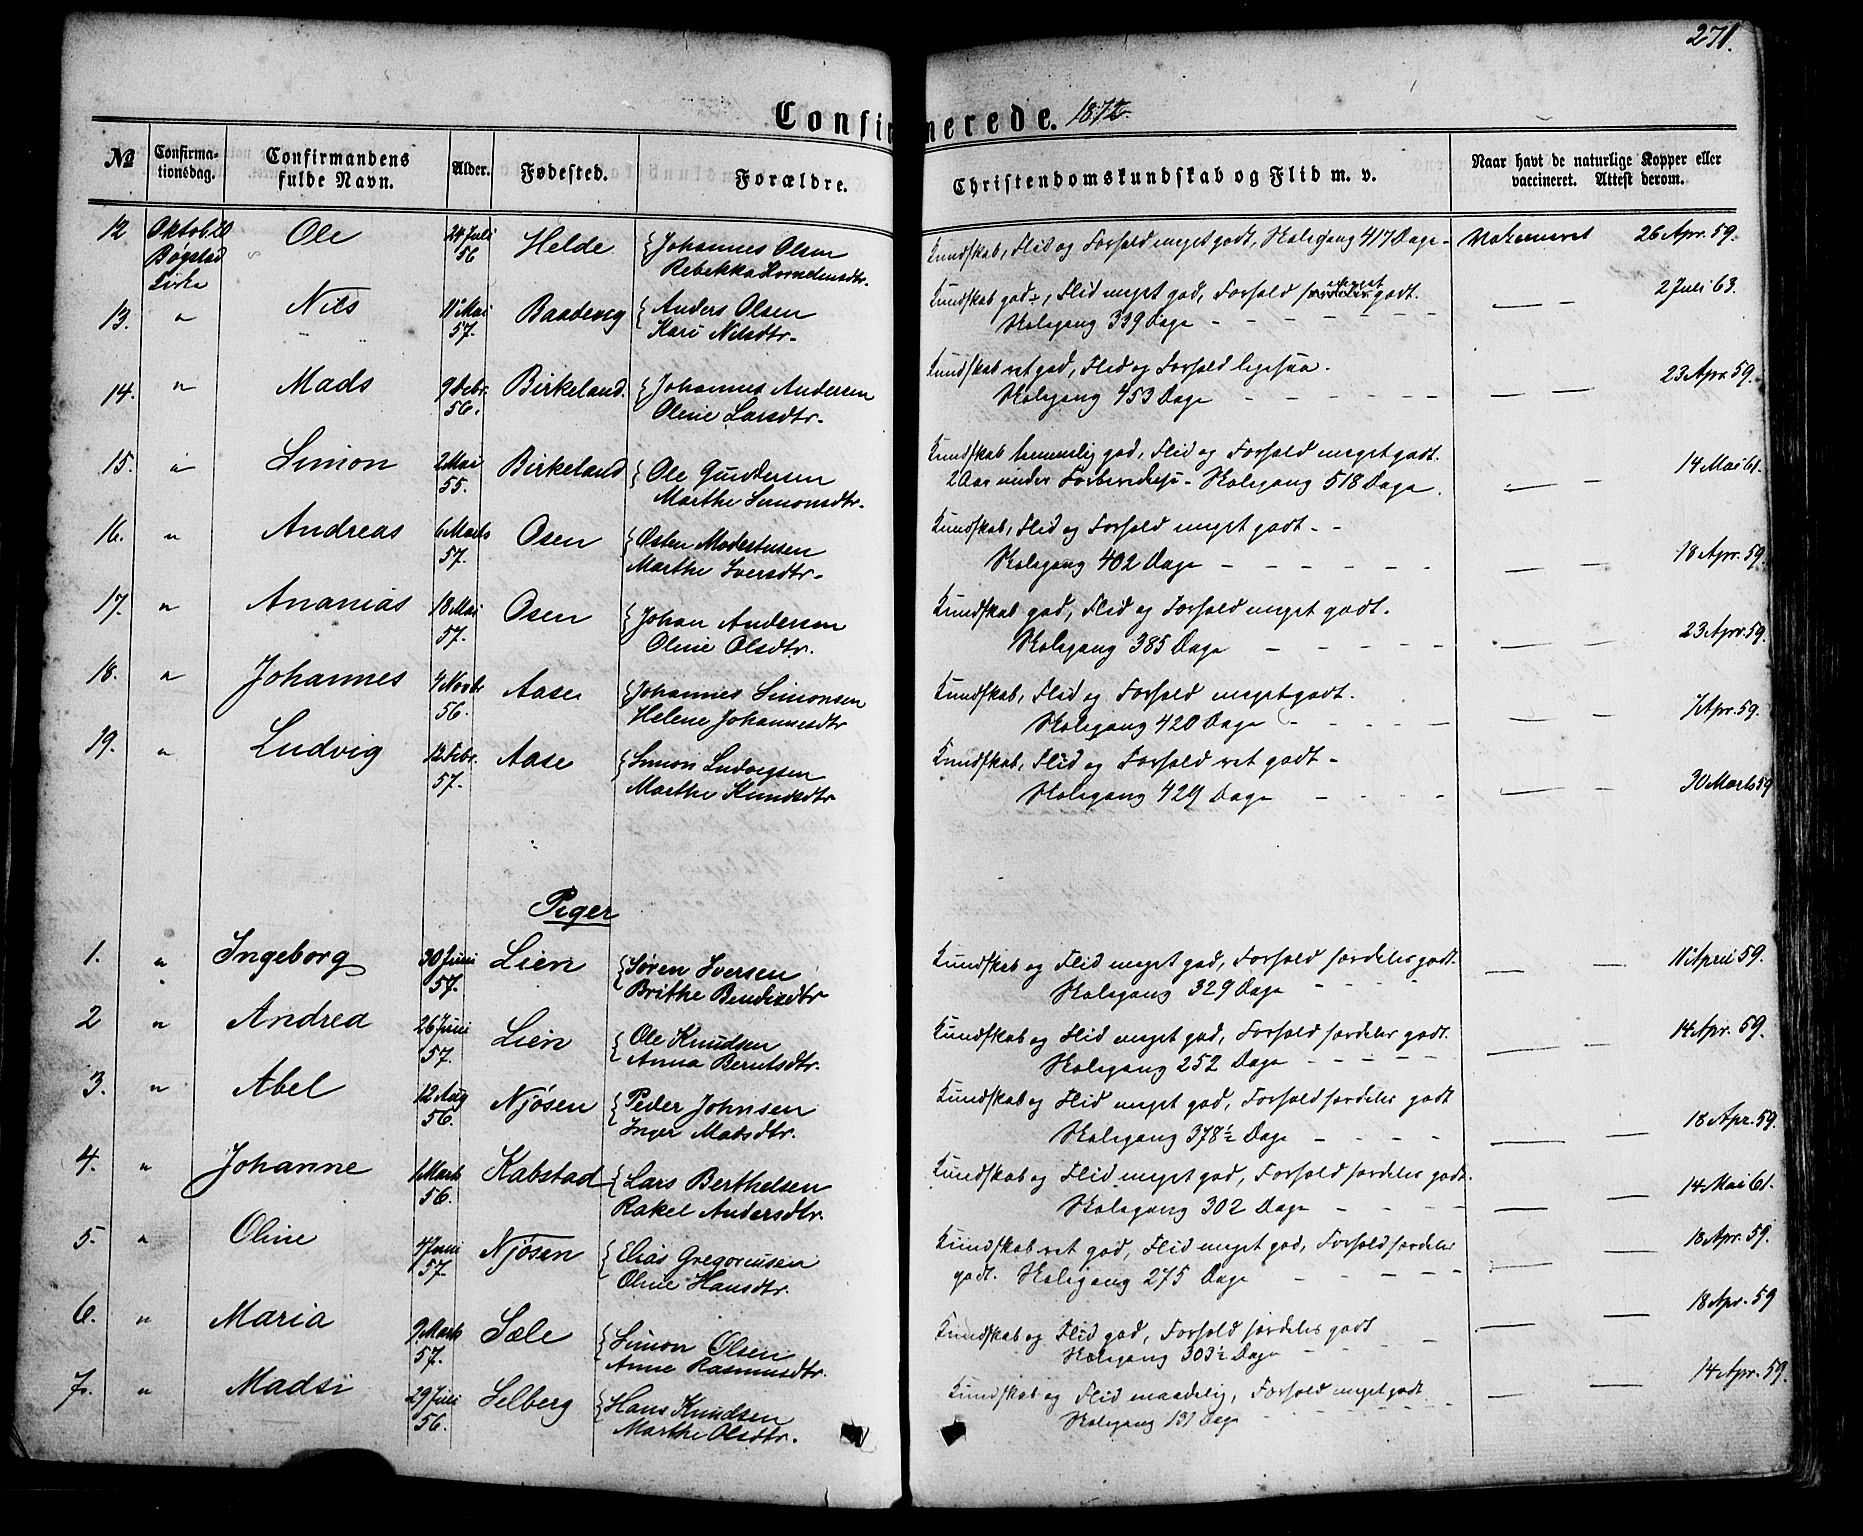 271.
Confirmerede. 1872
№ Confirma-tionsdag. Confirmandens fulde Navn. Alder. Fødested. Forældre. Christendomskundskab og Flid m. v. Naar havt de naturlige Kopper eller vaccineret. Attest derom.
12 Oktob. 20 Ole 24 Juli 56 Helde { Johannes Olsen Kundskab, Flid og Forhold meget godt, Skolegang 417 Dage - Vakcineret 26 Apr. 59.
Bøgstad Kirke Rebekka
13. " Nils 11 Mai 57. Baadevig { Anders Olsen Kundskab god+, Flid meget god, Forhold meget godt. — — 2 Juli 63.
Kari Nilsdtr. Skolegang 339 Dage - - - - - -
14. " Mads 9 Febr. 56. Birkeland. { Johannes Andersen Kundskab ret god, Flid og Forhold ligesaa. — — 23 Apr. 59.
Oline Larsdtr. Skolegang 453 Dage - - - - - -
15. " Simon 2 Mai 55. Birkeland { Ole Gundersen Kundskab temmelig god, Flid og Forhold meget godt. — — 14 Mai 61.
Marthe Simonsdtr. 2 Aar under Forberedelse - Skolegang 518 Dage.
16. " Andreas 6 Marts 57. Osen { Østen Modestusen Kundskab, Flid og Forhold meget godt - - — — 18 Apr. 59.
Marthe Iversdtr. Skolegang 402 Dage - - - - - -
17. " Ananias 18 Mai 57. Osen { Johan Andersen Kundskab god, Flid og Forhold meget godt. — — 23 Apr. 59.
Oline Olsdtr. Skolegang 385 Dage - - - - -
18. " Johannes 4 Novbr 56. Aase { Johannes Simonsen Kundskab, Flid og Forhold meget godt. — — 7 Apr. 59.
Helene Johannesdtr Skolegang 420 Dage - - - - -
19. " Ludvig 12 Febr. 57. Aase { Simon Ludvigsen Kundskab, Flid og Forhold ret godt - — — 30 Marts 59
Marthe Knudsdtr Skolegang 429 Dage - - - -
Piger
1. " Ingeborg 30 Juni 57. Lien { Søren Iversen Kundskab og Flid meget god, Forhold særdeles godt. — — 11 April 59.
Brithe Bendixdtr Skolegang 329 Dage - - - -
2 " Andrea 26 Juni 57. Lien { Ole Knudsen Kundskab og Flid meget god, Forhold særdeles godt. — — 14 Apr. 59.
Anna Berntsdtr. Skolegang 252 Dage - - - -
3. " Abel 12 Aug 56. Njøsen { Peder Johnsen Kundskab og Flid meget god, Forhold særdeles godt — — 18 Apr. 59.
Inger Madsdtr. Skolegang 378½ Dage - - - -
4. " Johanne 1 Marts 56. Kabstad { Lars Berthelsen Kundskab og Flid meget god, Forhold særdeles godt. — — 14 Mai 61.
Rakel Andersdtr. Skolegang 302 Dage - - - -
5. " Oline 4 Juni 57. Njøsen { Elias Gregoriusen Kundskab ret god, Flid meget god, Forhold særdeles — — 18 Apr. 59.
Oline Hansdtr. godt. Skolegang 275 Dage - - - - -
6. " Maria 9 Marts 57. Sæle { Simon Olsen Kundskab og Flid god, Forhold særdeles godt — — 18 Apr. 59
Anne Rasmusdtr. Skolegang 303½ Dage - - -
7. " Madsi 29 Juli 56. Selberg { Hans Knudsen Kundskab og Flid maadelig, Forhold meget godt — — 14 Apr. 59.
Marthe Olsdtr. Skolegang 131 Dage - - - - -